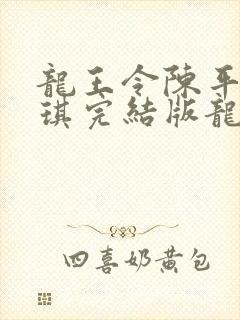 龍王令陳平
琪完結版龍
四喜奶黃包